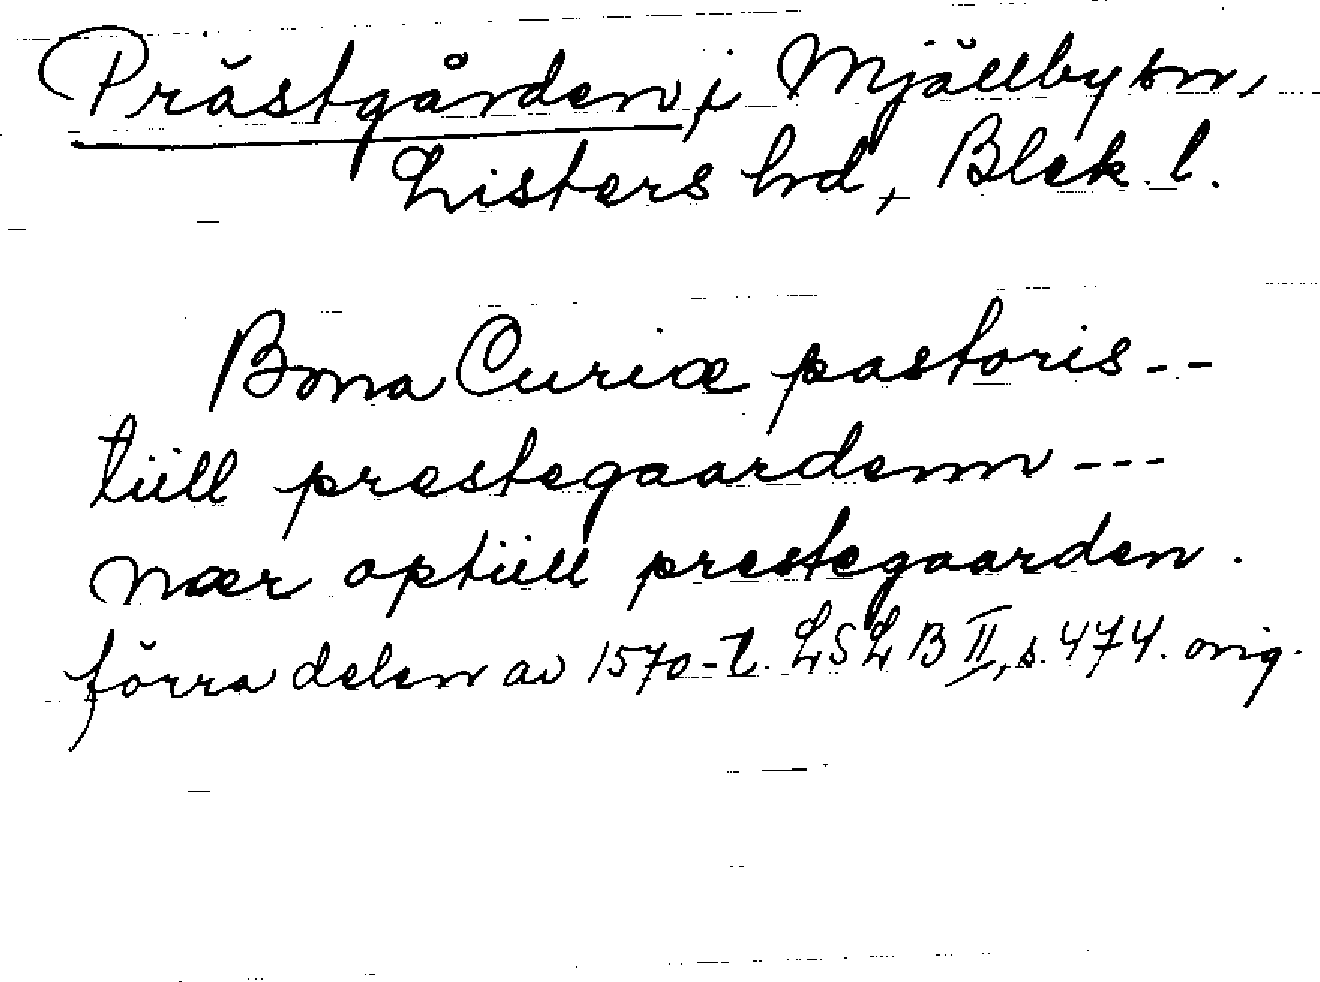 Prästgården, i Mjällby sn,
Listers hd, Blek. l.
Bona Curiæ pastoris --
tiill prestegaardenn ---
nær optiill prestegaarden.
förra delen av 1570-t. LSLB II, s. 474. orig.